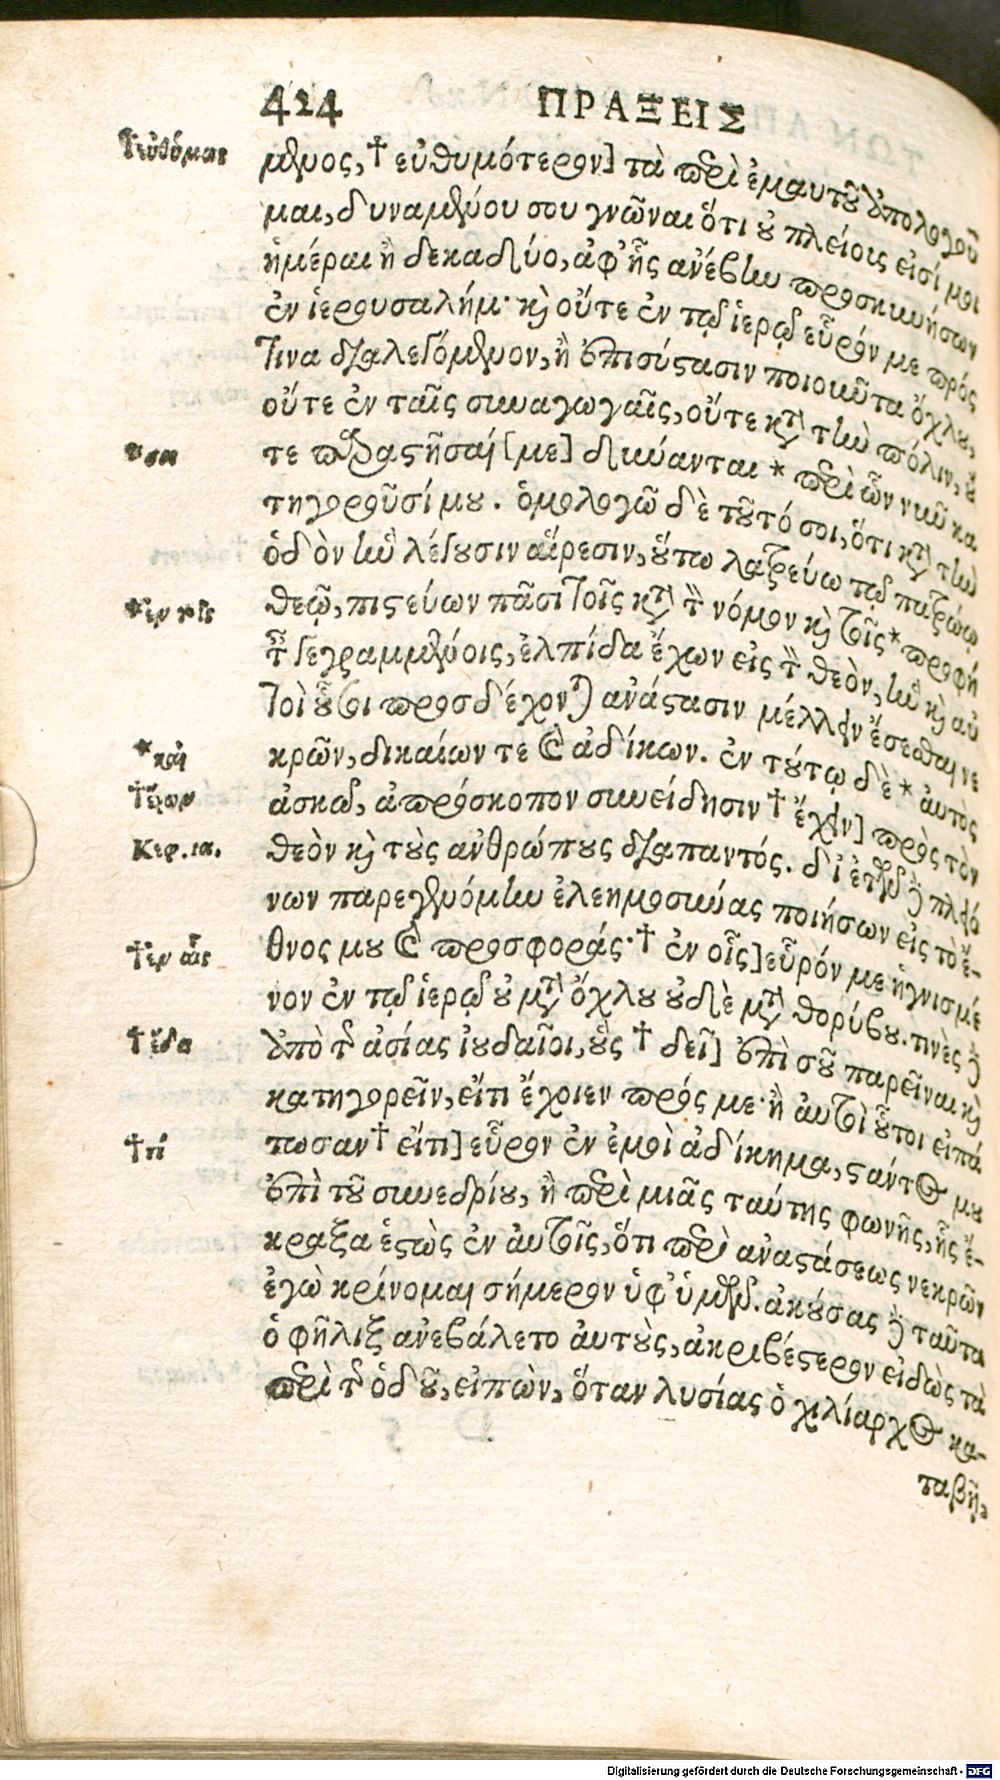 424 ΠΡΑΞΕΙΣ
†εὐθύμως
μενος, † εὐθυμότερον] τὰ περὶ ἐμαυτοῦ ἀπολογοῦ
μαι, δυναμένου σου γνῶναι ὅτι οὐ πλείους εἰσί μοι
ἡμέραι ἢ δεκαδύο, ἀφ' ἧς ἀνέβην προσκυνήσων
ἐν ἱερουσαλήμ· καὶ οὔτε ἐν τῷ ἱερῷ εὗρόν με πρός
τινα διαλεγόμενον, ἢ ἐπισύστασιν ποιοῦντα ὄχλου,
οὔτε ἐν ταῖς συναγωγαῖς, οὔτε κατὰ τὴν πόλιν, οὔ
*σοι
τε παραστῆσαί [με] δύνανται * περὶ ὧν νῦν κα
τηγοροῦσί μου. ὁμολογῶ δὲ τοῦτό σοι, ὅτι κατὰ τὴν
ὁδὸν ἣν λέγουσιν αἵρεσιν, οὕτω λατρεύω τῷ πατρώῳ
*ἐν τοῖς
θεῷ, πιστεύων πᾶσι τοῖς κατὰ τὸν νόμον καὶ τοῖς * προφή
ταις γεγραμμένοις, ἐλπίδα ἔχων εἰς τὸν θεὸν, ἣν καὶ αὐ
τοὶ οὗτοι προσδέχονται ἀνάστασιν μέλλειν ἔσεσθαι νε
*καὶ
κρῶν, δικαίων τε καὶ ἀδίκων. ἐν τούτῳ δὲ * αὐτὸς
†ἔχων
ἀσκῶ, ἀπρόσκοπον συνείδησιν † ἔχειν] πρὸς τὸν
Κεφ. ια.
θεὸν καὶ τοὺς ἀνθρώπους διαπαντός. δι' ἐτῶν δὲ πλειό
νων παρεγενόμην ἐλεημοσύνας ποιήσων εἰς τὸ ἔ-
†ἐν αἷς
θνος μου καὶ προσφοράς· † ἐν οἷς] εὗρόν με ἡγνισμέ
νον ἐν τῷ ἱερῷ οὐ μετὰ ὄχλου οὐδὲ μετὰ θορύβου. τινὲς δὲ
†ἔδει
ἀπὸ τῆς ἀσίας ἰουδαῖοι, οὓς † δεῖ] ἐπὶ σοῦ παρεῖναι καὶ
κατηγορεῖν, εἴτι ἔχοιεν πρός με· ἢ αὐτοὶ οὗτοι εἰπά
†τί
τωσαν † εἴτι] εὗρον ἐν ἐμοὶ ἀδίκημα, στάντος μου
ἐπὶ τοῦ συνεδρίου, ἢ περὶ μιᾶς ταύτης φωνῆς, ἧς ἔ-
κραξα ἑστὼς ἐν αὐτοῖς, ὅτι περὶ ἀναστάσεως νεκρῶν
ἐγὼ κρίνομαι σήμερον ὑφ' ὑμῶν. ἀκούσας δὲ ταῦτα
ὁ φῆλιξ ἀνεβάλετο αὐτοὺς, ἀκριβέστερον εἰδὼς τὰ
περὶ τῆς ὁδοῦ, εἰπὼν, ὅταν λυσίας ὁ χιλίαρχος κα-
ταβῇ,
Digitalisierung gefördert durch die Deutsche Forschungsgemeinschaft - DFG